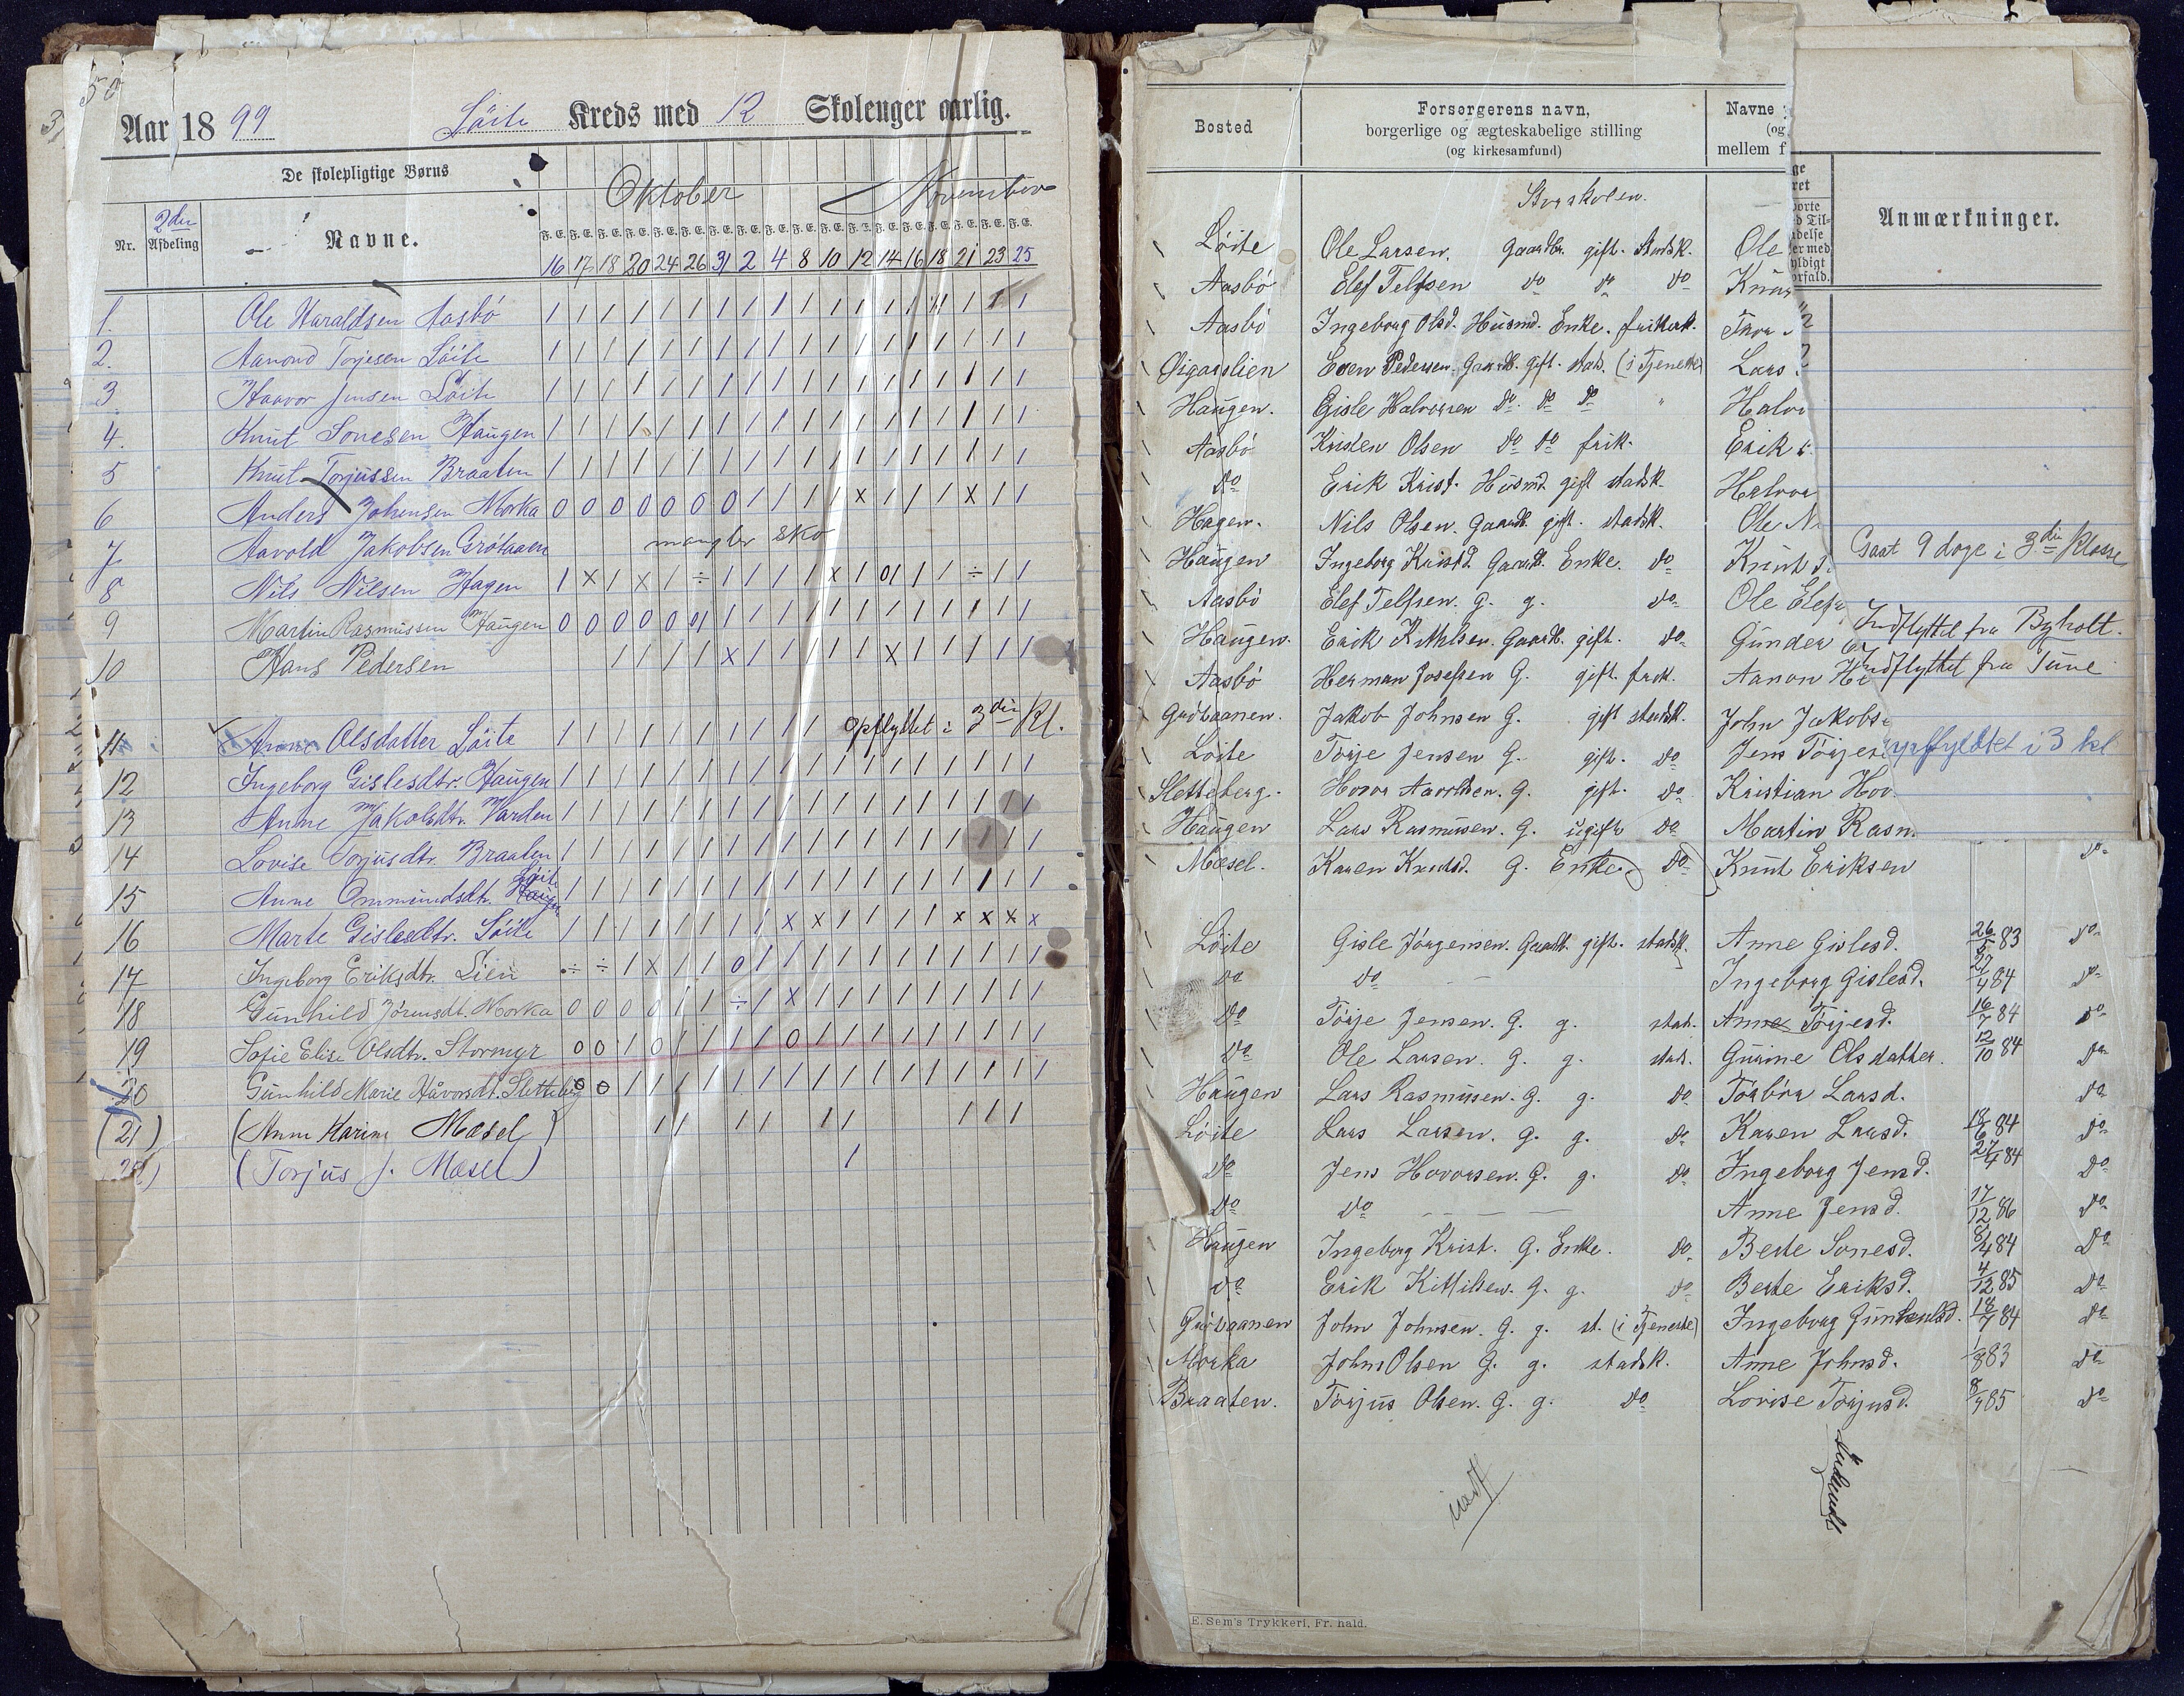 50
Aar 1899 Löite Kreds med 12 Skolenger aarlig.
De skolepligtige Børns
Oktober November
Nr. 2den Afdeling Navne.
F. E. F. E. F. E. F. E. F. E. F. E. F. E. F. E. F. E. F. E. F. E. F. E. F. E. F. E. F. E. F. E. F. E. F. E.
16 17 18 20 24 26 31 2 4 8 10 12 14 16 18 21 23 25
1. Ole Haraldsen Aasbö / / / / / / / / / / / / / / / / /
2. Aanond Torjesen Löite / / / / / / / / / / / / / / / / / /
3 Haavor Jensen Löite / / / / / / / / / / / / / / / / / /
4. Knut Sonesen Haugen / / / / / / / / / / / / / / / / / /
5 Knut Torjussen Braaten / / / / / / / / / / / / / / / / / /
6 Anders Johensen Morka 0 0 0 0 0 0 0 / / / / x / / / x / /
7 Aavold Jakobsen Grötaaen mangler sko
8 Nils Nilsen Hagen / x / x / ÷ / / / / x / 0/ / / ÷ / /
9 Martin Rasmussen Haugen 0 0 0 0 0 0/ / / / / / / / / / / / /
10 Hans Pedersen / / / / x / / / / / x / / / / /
11 Anne Olsdatter Löite / / / / / / / / / / opflyttet i 3die Kl.
12 Ingeborg Gislesdtr. Haugen / / / / / / / / / / / / / / / / / /
13 Anne Jakobsdtr. Varden / / / / / / / / / / / / / / / / / /
14 Lovise Torjusdtr. Braaten / / / / / / / / / / / / / / / / / /
Löite
15 Anne Ommundsdtr. Haugen / / / / / / / / / / / / / / / / / /
16 Marte Gislesdtr. Löite / / / / / / / / x x / / / / x x x x
17 Ingeborg Eriksdtr. Lien ÷ ÷ / x / / 0 / / / / / / / / / / /
18 Gunhild Jörensdt. Morka 0 0 0 0 / / ÷ / x / / / / / / / / /
19 Sofie Elise Olsdtr. Stormyr 0 0 / 0 / / / / 0 / / / / / / / / /
20 Gunhild Marie Håvorsdt. Sletteberg 0 0 / / / / / / / / / / / / / / / /
(21) (Anne Karine Mæsel) / / / / / / / / /
(Torjus J. Mæsel) /
Bosted
Forsørgerens navn,
borgerlige og ægteskabelige stilling
(og kirkesamfund)
Navne
(og
mellem f
Anmærkninger.
Storskolen.
Löite Ole Larsen. Gaardbr. gift. Stadsk. Ole
Aasbö Elef Telfsen do do do Knut
Aasbö Ingeborg Olsd. Husmd. Enke. frikirk. Thor
Öigardlien Even Pedersen. Gaardb. gift. stads. (i Tjeneste) Lars
Haugen. Gisle Halvorsen do. do do " Halvo
Aasbö Kristen Olsen do do frik. Erik
do Erik Krist. Husmd. gift stadsk. Halvor
Hagen. Nils Olsen. Gaardb. gift. stadsk. Ole N
Gaat 9 dage i 3die Klasse
Haugen Ingeborg Kristd. Gaardb. Enke. do Knut
Aasbö Elef Telfsen. G. g. do Ole Elefs
Indflyttet fra Byholt.
Haugen. Erik Kittelsen. Gaardb. gift. do Gunder
Indflyttet fra Tune
Aasbö Herman Josefsen G. gift. frik. Aanon He
Grötaanen. Jakob Johnsen G. gift stadsk. John Jakobse
Löite Torje Jensen G. gift. do Jens Torjes
opflyttet i 3 kl
Sletteberg. Hovor Aavoldsen. G. gift. do Kristian Hov.
Haugen Lars Rasmussen. G. ugift do Martin Rasm.
Mæsel. Karen Knudsd. G. Enke. do Knut Eriksen do
Löite Gisle Jörgensen. Gaardb. gift. stadsk. Anne Gislesd. 26/5 83 do
do do — Ingeborg Gislesd. 27/4 84 do
do Torje Jensen. G. g. stad. Anne Torjesd. 16/7 84 do
do Ole Larsen. G. g. stad. Gurine Olsdatter. 12/10 84 do
Haugen Lars Rasmussen. G. g. do Torbör Larsd. do
Löite Lars Larsen. G. g. do Karen Larsd. 18/6 84 do
do Jens Hovorsen. G. g. do Ingeborg Jensd. 27/4 84 do
do do — — — Anne Jensd. 17/12 86 do
Haugen Ingeborg Krist. G. Enke. do Berte Sonesd. 8/4 84 do
do Erik Kittilsen. G. g. do Berte Eriksd. 4/12 85 do
Grötaanen John Johnsen. G. g. st. (i Tjeneste) Ingeborg 18/7 84 do
Morka John Olsen G. g. stadsk. Anne Johnsd. 1/8 83 do
Braaten. Torjus Olsen. G. g. do Lovise Torjusd. 8/9 85 do
E. Sem's Trykkeri, Fr. hald.